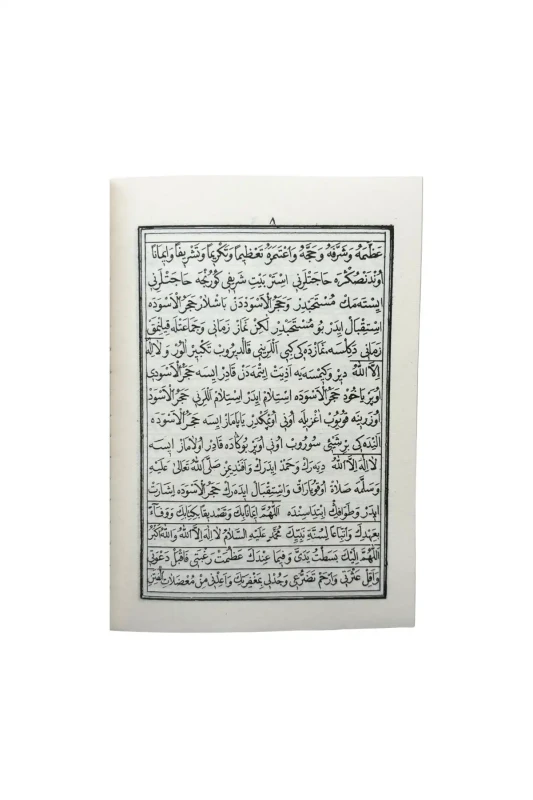 ٨
عَظَّمَهُ وَشَرَّفَهُ وَحَجَّهُ وَاعْتَمَرَهُ تَعْظِيمًا وَتَكْرِيمًا وَتَشْرِيفًا وَاِيمَانًا
اوندنصكره حاجتلرنى استر بيت شريفى كورنجه حاجتلرنى
ايسته مك مستحبدر وحجر الاسوددن باشلار حجر الاسوده
استقبال ايدر بو مستحبدر لكن نماز زمانى وجماعتله قيلنمق
زمانى دكلسه نمازده كى كبى اللرينى قالديروب تكبير الور و لا اله
الا الله دير وكيمسه يه اذيت ايتمه دن قادر ايسه حجر الاسودى
اوپر ياخود حجر الاسوده استلام ايدر استلام اللرنى حجر الاسود
اوزرينه قويوب اغزيله اونى اوپمكدر ياپاماز ايسه حجر الاسوده
النده كى بر شيئى سوروب اونى اوپر بوكاده قادر اولاماز ايسه
لا اله الا الله ديه رك وحمد ايدرك وافنديمز صلى الله تعالى عليه
وسلمه صلاة اوقويارق واستقبال ايده رك حجر الاسوده اشارت
ايدر وطوافك ابتداسنده اللهم ايمانا بك وتصديقا بكتابك ووفاء
بعهدك واتباعا لسنة نبيك محمد عليه السلام لا اله الا الله والله اكبر
اللهم اليك بسطت يدى وفيما عندك عظمت رغبتى فاقبل دعوتى
واقل عثرتى وارحم تضرعى وجد لى بمغفرتك واعذنى من معضلات الفتن